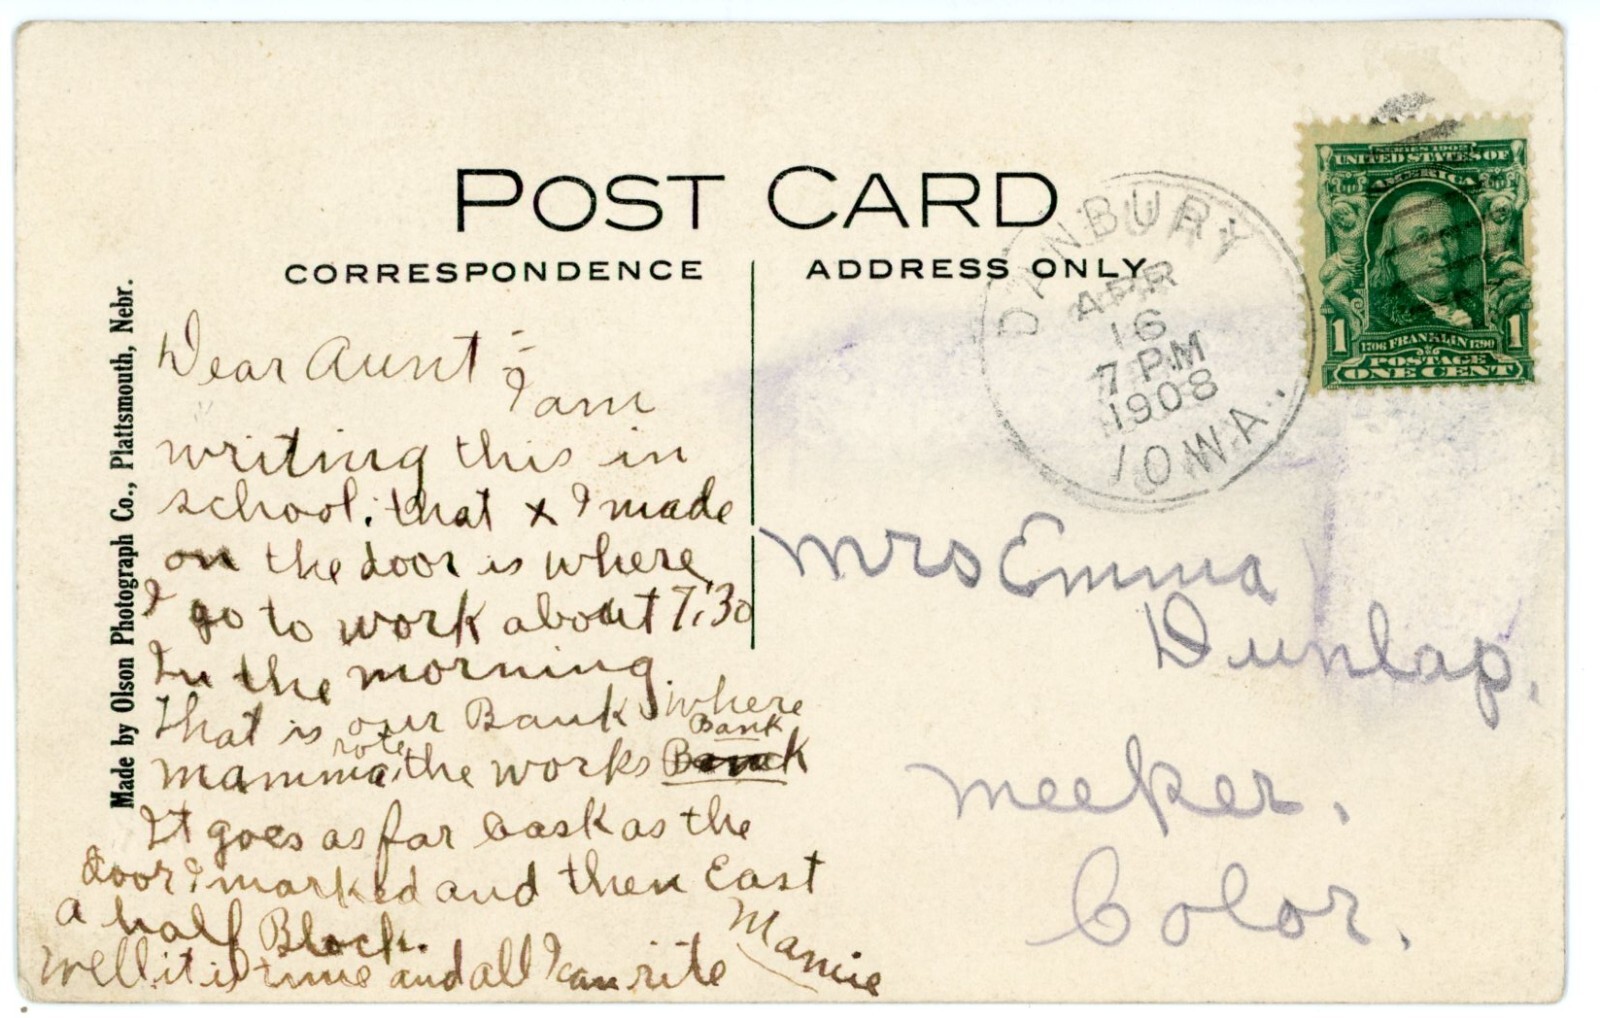 POST CARD
CORRESPONDENCE
ADDRESS ONLY
Made by Olson Photograph Co., Plattsmouth, Nebr.
Dear Aunt :-
I am
writing this in
school. that x I made
on the door is where
I go to work about 7:30
In the morning.
That is our Bank where
mamma rote the works Bank
It goes as far bask as the
door I marked and then East
a half Block.
Well it is time and all I can rite
Mamie
Mrs Emma
Dunlap.
Meeker.
Color.
DANBURY
APR
16
7 PM
1908
IOWA.
SERIES 1902
UNITED STATES OF
AMERICA
1 1
1706 FRANKLIN 1790
POSTAGE
ONE CENT